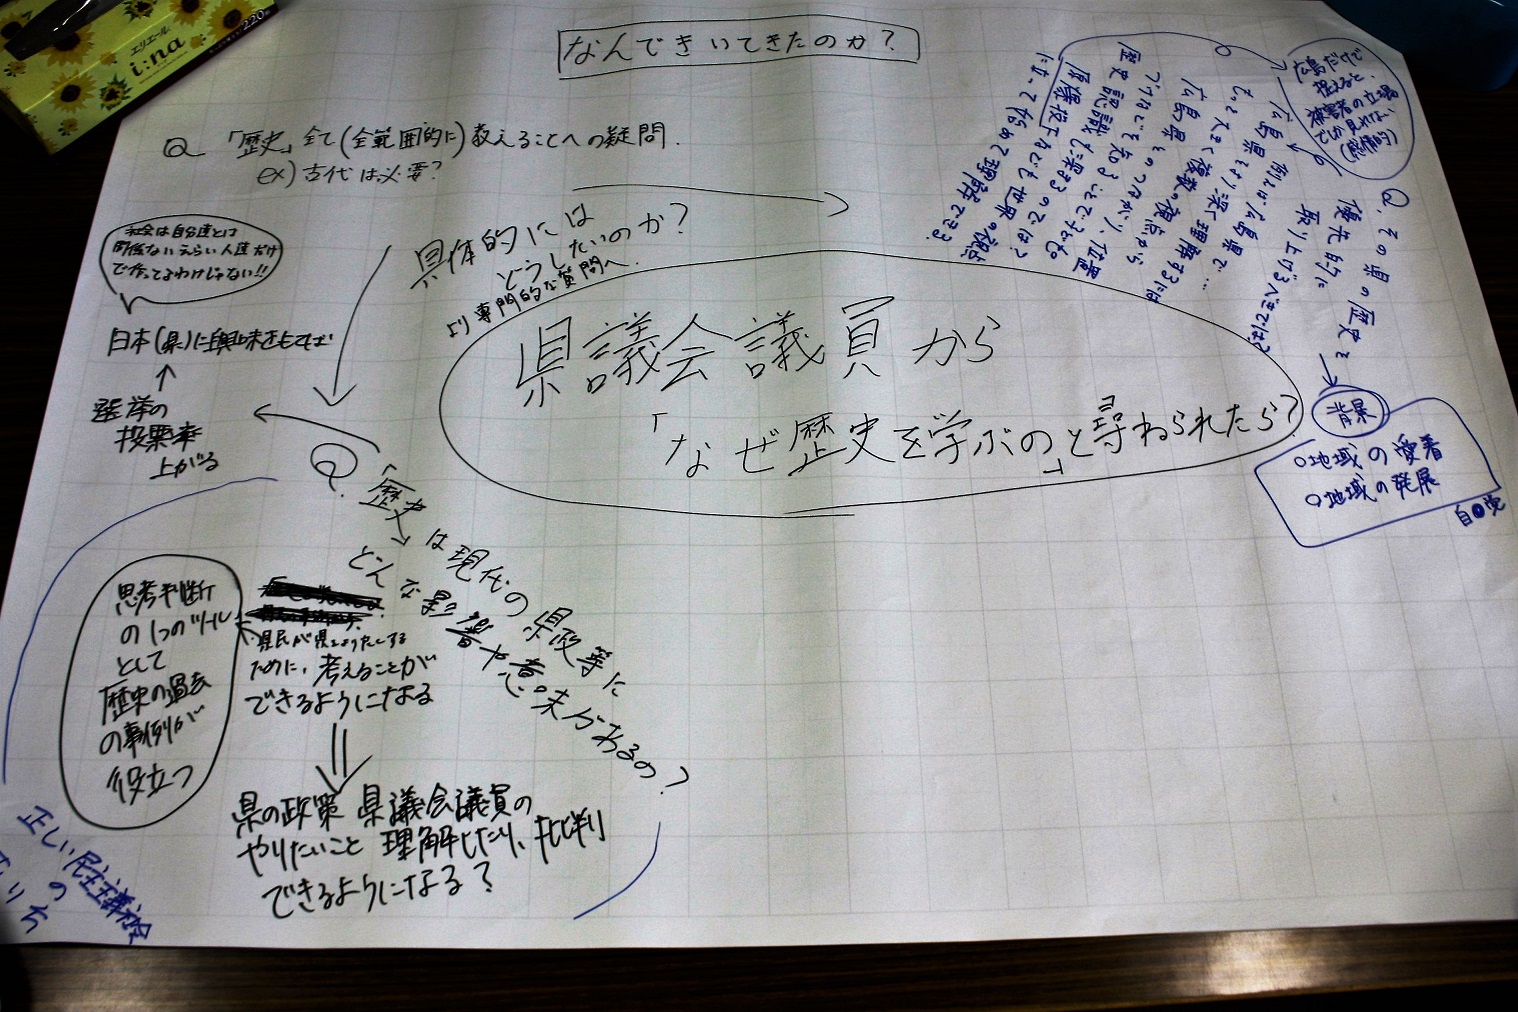 なんできいてきたのか?
Q 「歴史」全て(全範囲的に)教えることへの疑問.
ex) 古代は必要?
具体的には
どうしたいのか?
より専門的な質問へ.
県議会議員から
「なぜ歴史を学ぶの」と尋ねられたら?
社会は自分達とは
関係ないえらい人達だけ
で作ってるわけじゃない!!
日本(県)に興味をもてば
選挙の
投票率
上がる
Q.「歴史」は現代の県政等に
どんな影響や意味があるの?
思考判断
の1つのツール
として
歴史の過去
の事例が
役立つ
県民が県をよりよくする
ために、考えることが
できるようになる
県の政策 県議会議員の
やりたいこと 理解したり、批判
できるようになる?
正しい民主主義社会
の
広島だけで
捉えると、
被害者の立場
でしか見れない
(感情的)
Q.その県の歴史を
優先的に
取り上げるべきでは?
例えば広島県で…
広島県をより深く理解するには
もっと大きく複数の視点から
広島県とのつながり、位置
づけなどを知ることで、その
歴史認識も深まるのでは?
原爆投下なども世界の視点
背景
○地域の愛着
○地域の発展
エリエール
i:na
220